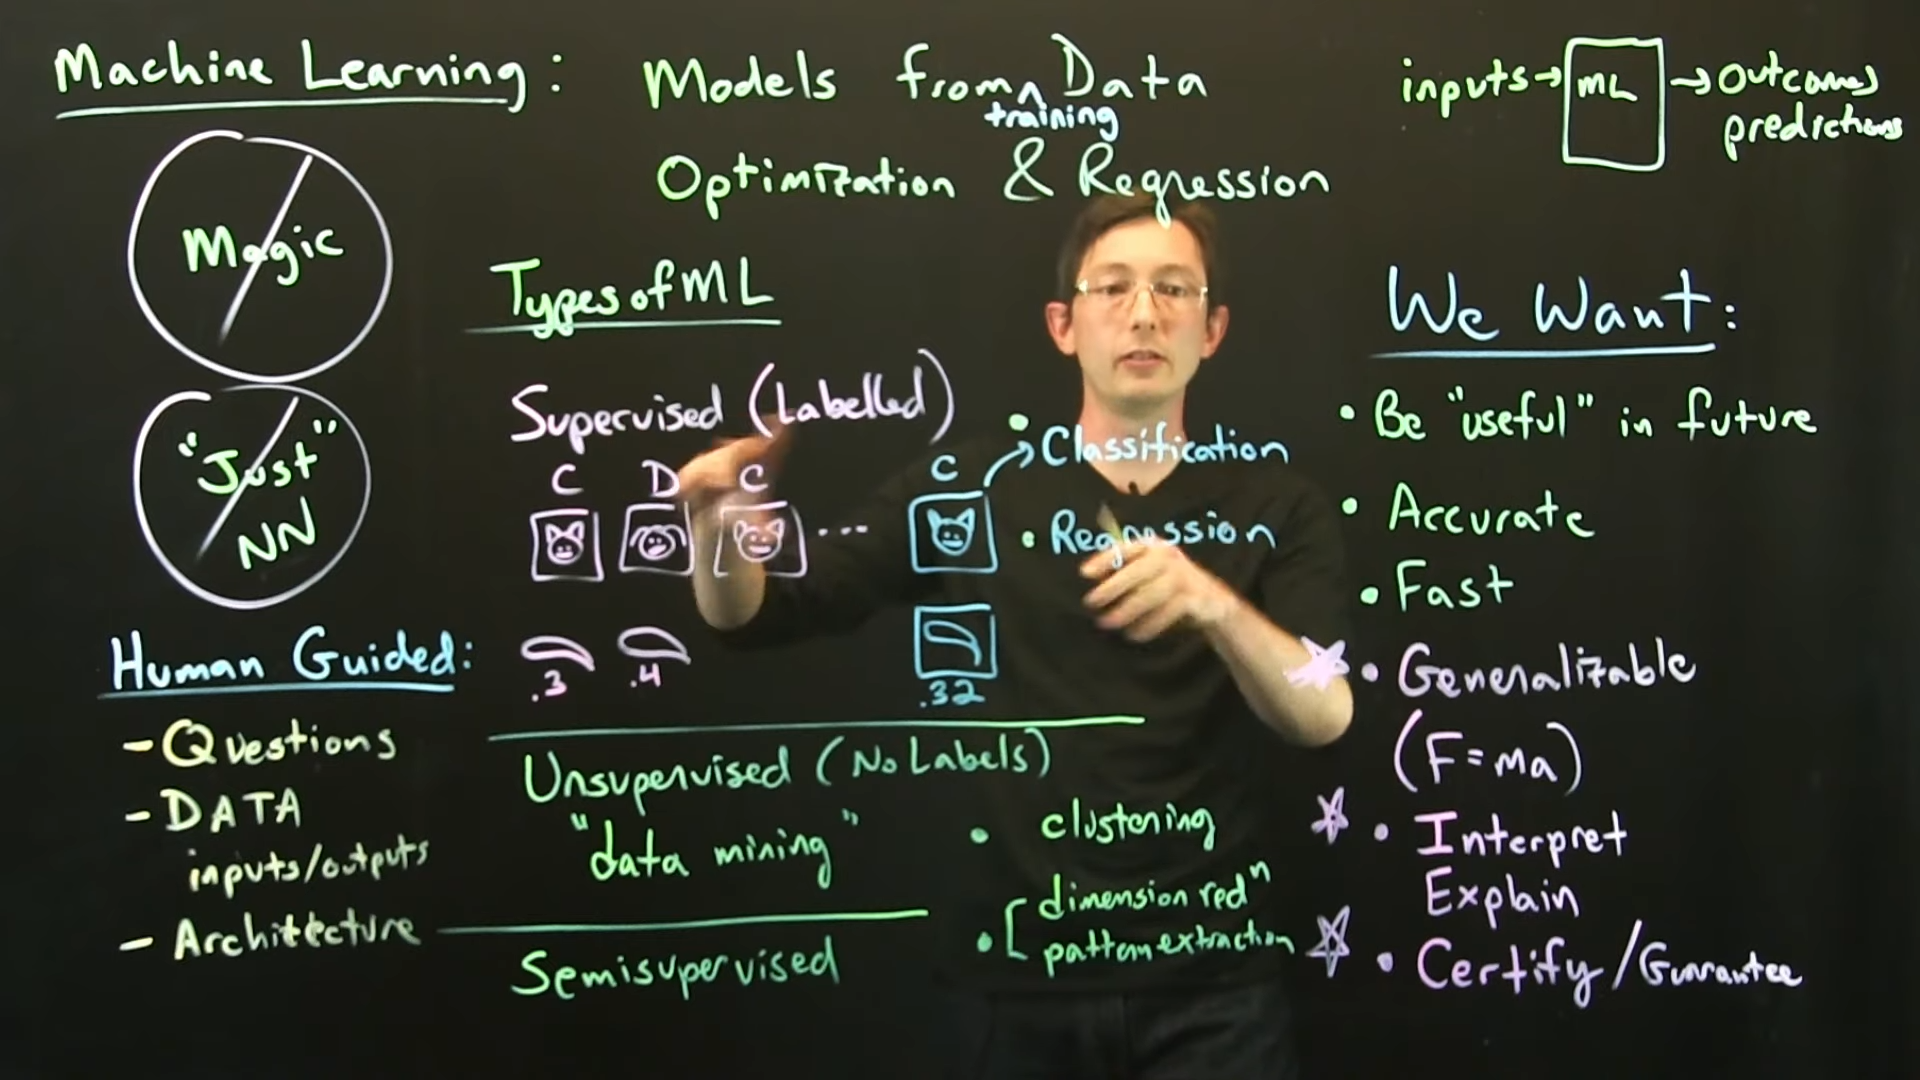 Machine Learning: Models from Data
training
Optimization & Regression
inputs → ML → Outcomes
predictions
Magic
"Just"
NN
Human Guided:
- Questions
- DATA
inputs/outputs
- Architecture
Types of ML
Supervised (Labelled)
C D C C
... 
.3 .4 .32
• Classification
• Regression
Unsupervised (No Labels)
"data mining"
• clustering
• [ dimension redⁿ
pattern extraction
Semisupervised
We Want:
• Be "useful" in future
• Accurate
• Fast
• Generalizable
(F=ma)
• Interpret
Explain
• Certify/Guarantee